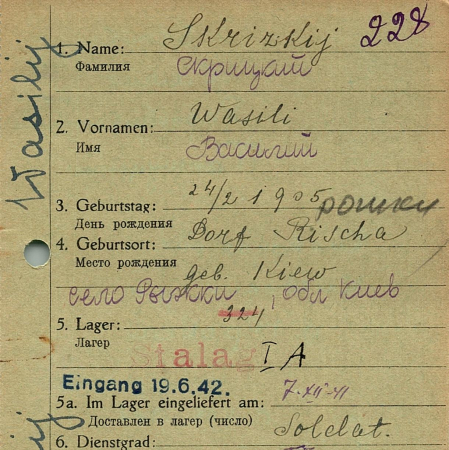 1. Name: Skrizkij 228
Фамилия Скрицкий
Wasilij
2. Vornamen: Wasili
Имя Василий
3. Geburtstag: 24/2 1905
День рождения
4. Geburtsort: Dorf Rischa
Место рождения geb. Kiew
село Рыжки, обл Киев
5. Lager: 324
Лагер
Stalag I A
Eingang 19.6.42.
5a. Im Lager eingeliefert am: 7.XII-41
Доставлен в лагер (число)
6. Dienstgrad: Soldat.